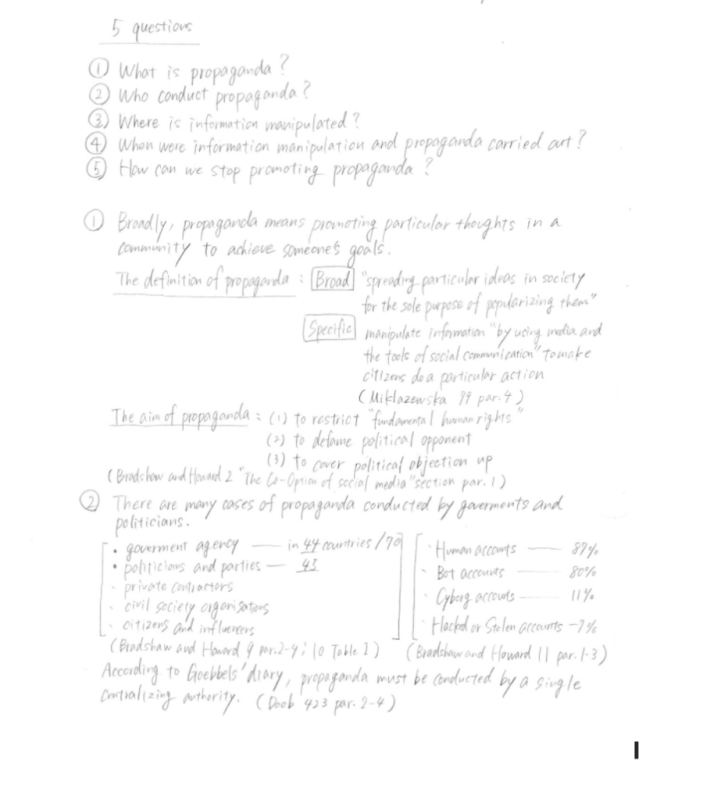 5 questions
① What is propaganda?
② Who conduct propaganda?
③ Where is information manipulated?
④ When were information manipulation and propaganda carried out?
⑤ How can we stop promoting propaganda?
① Broadly, propaganda means promoting particular thoughts in a
community to achieve someone's goals.
The definition of propaganda : Broad "spreading particular ideas in society
for the sole purpose of popularizing them"
Specific manipulate information "by using media and
the tools of social communication" to make
citizens do a particular action
(Miklazewska 99 par. 4)
The aim of propaganda : (1) to restrict "fundamental human rights"
(2) to defame political opponent
(3) to cover political objection up
(Bradshaw and Howard 2 "The Co-Option of social media" section par. 1)
② There are many cases of propaganda conducted by goverments and
politicians.
• goverment agency — in 44 countries / 70
• politicians and parties — 43
· private contractors
· civil society organisations
· citizens and influencers
(Bradshaw and Howard 9 par. 2-4; 10 Table 1)
· Human accounts — 87%
· Bot accounts — 80%
· Cyborg accounts — 11%
· Hacked or Stolen accounts – 7%
(Bradshaw and Howard 11 par. 1-3)
According to Goebbels' diary, propaganda must be conducted by a single
centralizing authority. (Doob 423 par. 2-4)